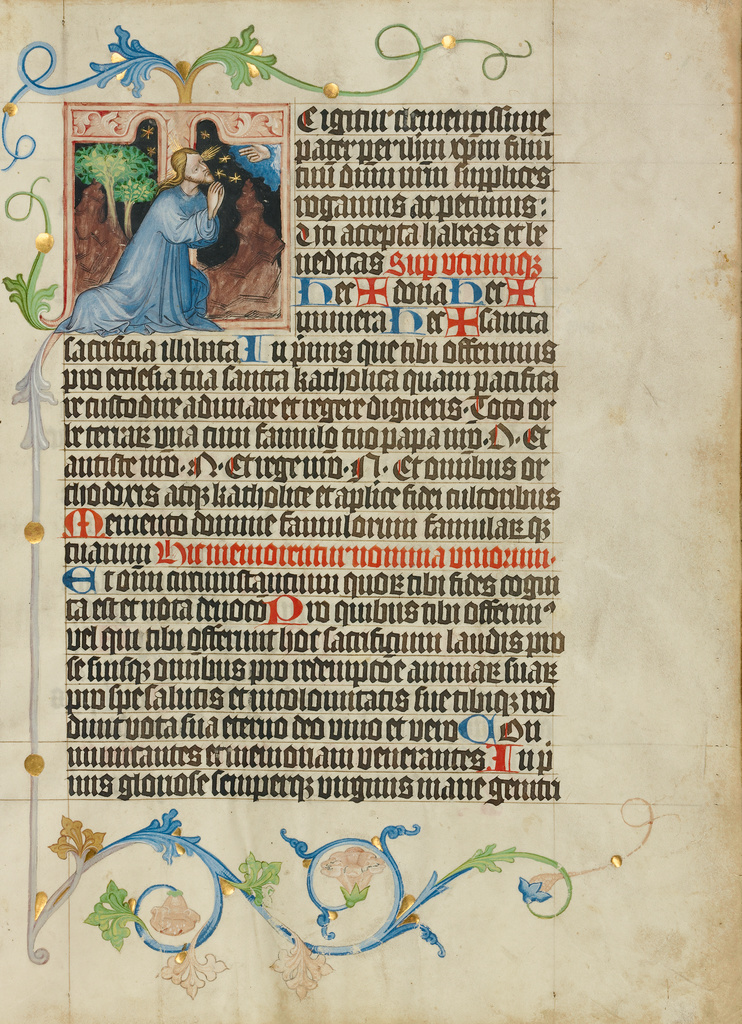 T E igitur clementissime
pater per ihm xpm filiu
tuu dum nrm supplices
rogamus ac petimus:
Uti accepta habeas et be
nedicas Sup utrumqꝫ
Hec ✠ dona Hec ✠
munera Hec ✠ sancta
sacrificia illibata In pmis que tibi offerimus
pro ecclesia tua sancta katholica quam pacifica
re custodire adunare et regere digneris. Toto or
be terraꝝ una cum famulo tuo papa nro. N. Et
antiste nro. N. Et rege nro. N. Et omnibus or
thodoxis atqꝫ katholice et aplice fidei cultoribus
Memento domine famulorum famulaꝝ qꝫ
tuarum Hic memorentur nomina vivorum.
Et omi circumstancium quoꝝ tibi fides cogni
ta est et nota devocio Pro quibus tibi offerimꝰ
vel qui tibi offerunt hoc sacrificium laudis pro
se suisqꝫ omnibus pro redempcoe animaꝝ suaꝝ
pro spe salutis et incolomitatis sue tibiqꝫ red
dunt vota sua eterno deo vivo et vero Com
municantes et memoriam venerantes. In p
mis gloriose semperqꝫ virginis marie genitri